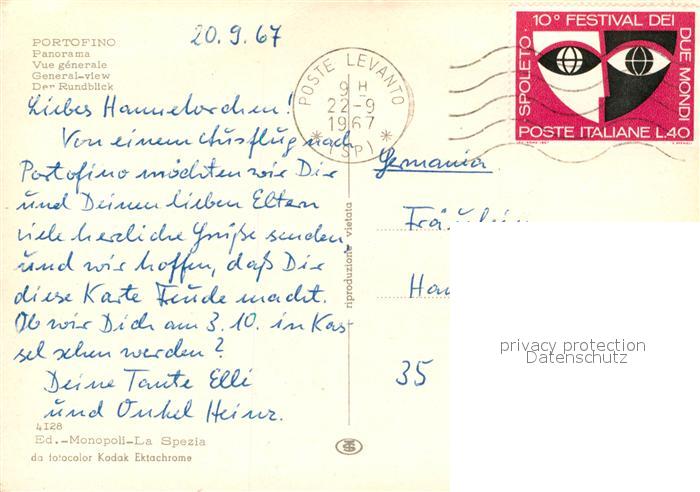 20.9.67
PORTOFINO
Panorama
Vue générale
General-view
Der Rundblick
Liebes Hannelorchen!
Von einem Ausflug nach
Portofino möchten wir Dir
und Deinen lieben Eltern
viele herzliche Grüße senden,
und wir hoffen, daß Dir
diese Karte Freude macht.
Ob wir Dich am 3.10. in Kas-
sel sehen werden?
Deine Tante Elli
und Onkel Heinz.
4128
Ed.-Monopoli-La Spezia
da fotocolor Kodak Ektachrome
riproduzione vietata
POSTE LEVANTO
9 H
22-9
1967
(SP)
10° FESTIVAL DEI
DUE MONDI
SPOLETO
POSTE ITALIANE L.40
Germania
Fräulein
Han
35
privacy protection
Datenschutz